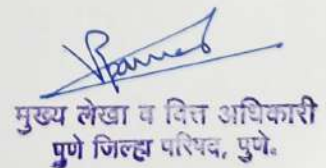 मुख्य लेखा व वित्त अधिकारी
पुणे जिल्हा परिषद, पुणे.